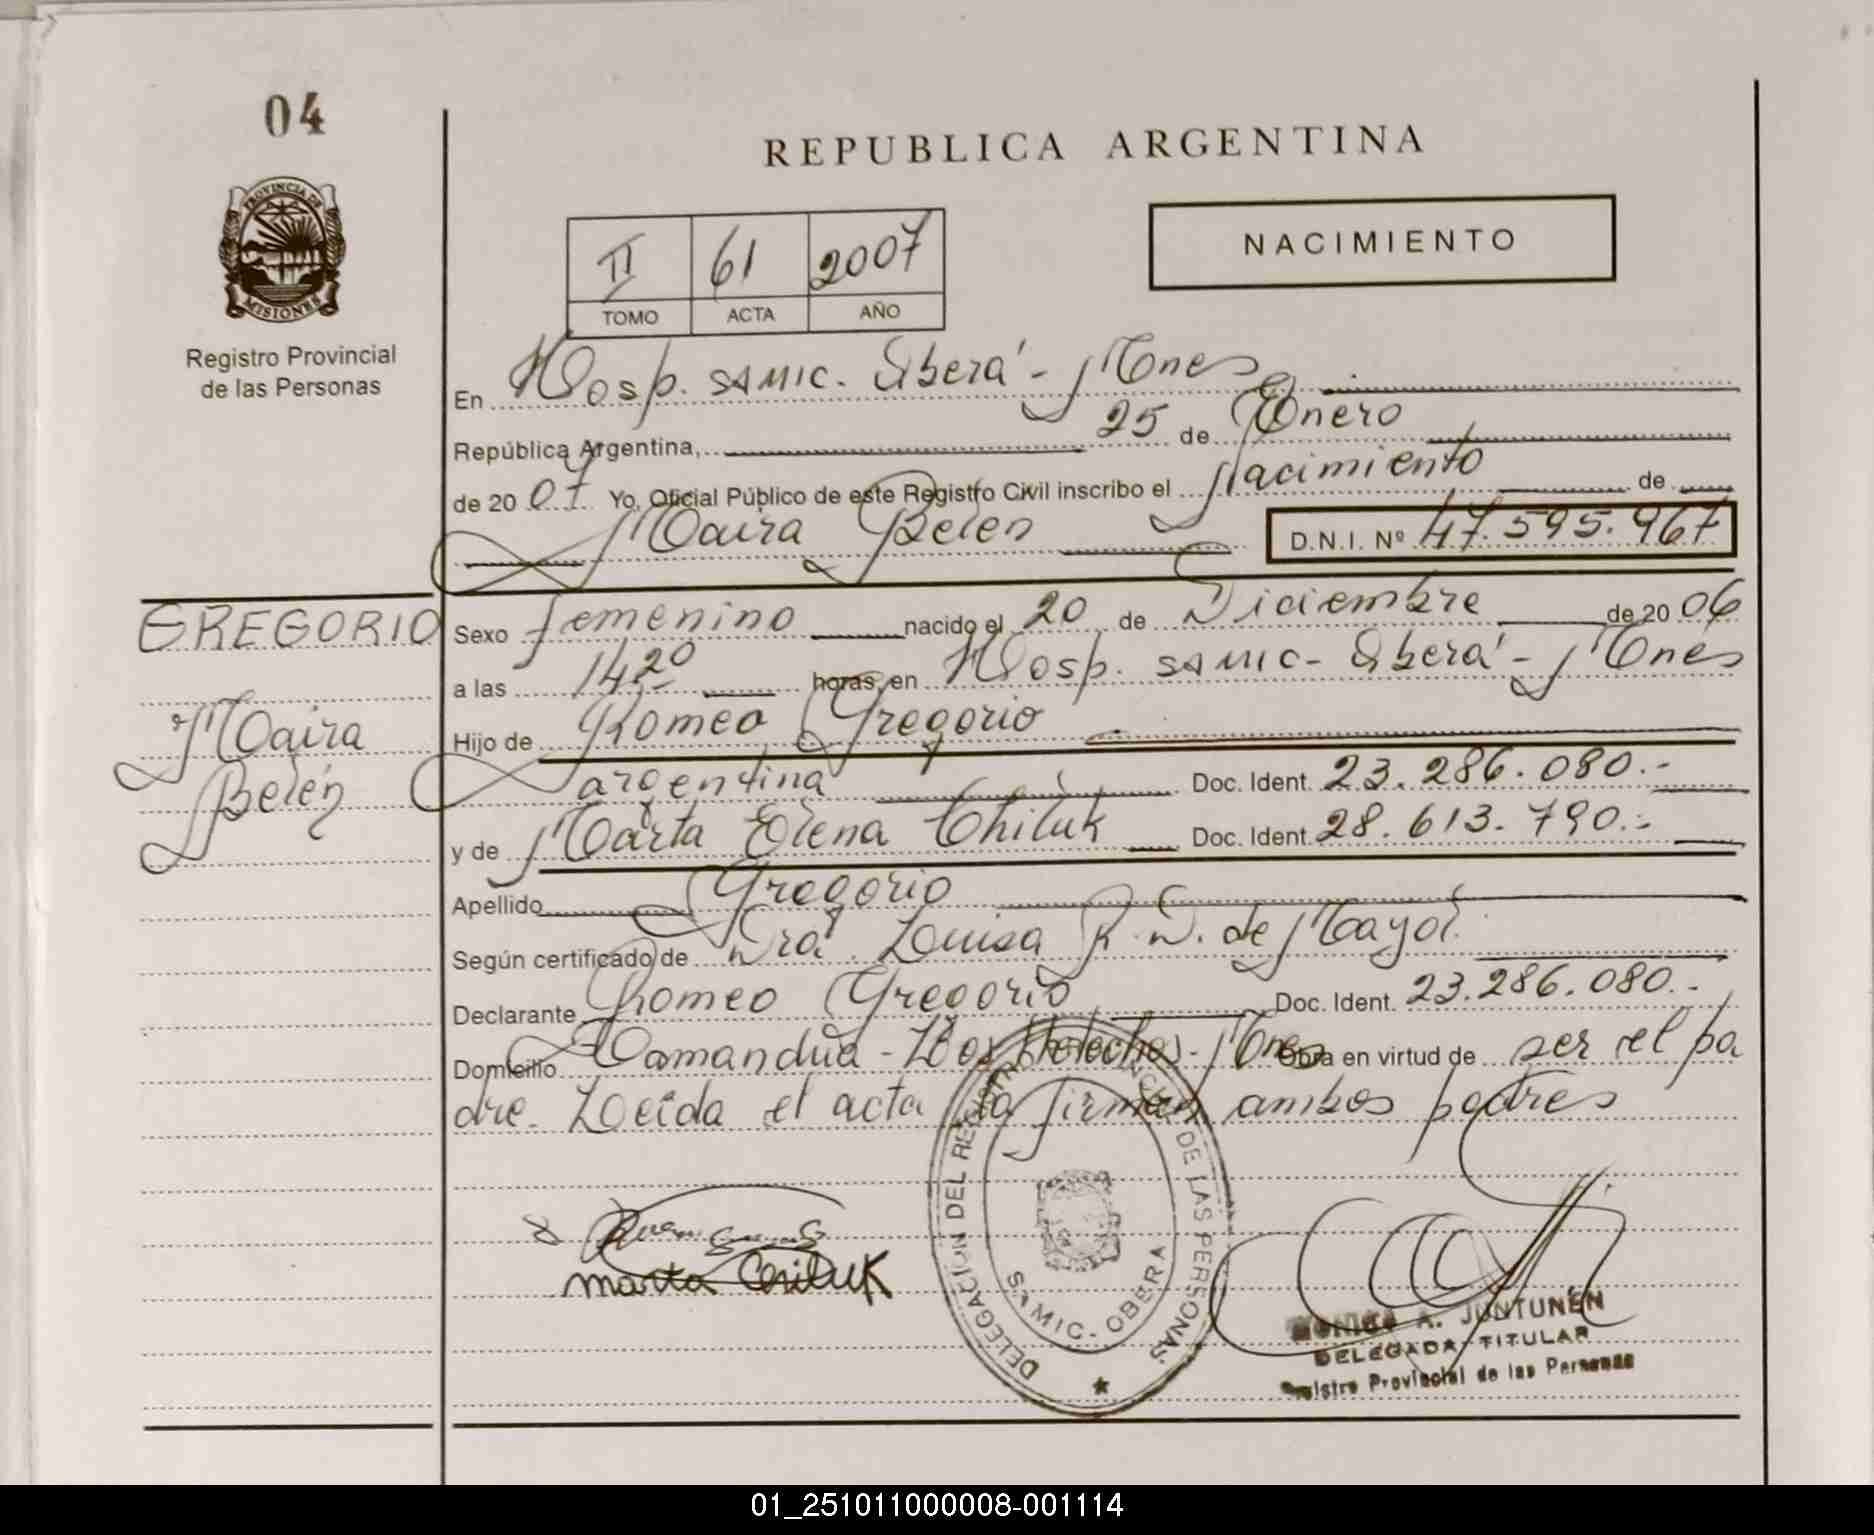 04
REPUBLICA ARGENTINA
PROVINCIA DE
MISIONES
Registro Provincial
de las Personas
NACIMIENTO
II 61 2007
TOMO ACTA AÑO
En Hosp. SAMIC. Oberá - Mnes
República Argentina, 25 de Enero
de 2007 Yo, Oficial Público de este Registro Civil inscribo el Nacimiento de
Maira Belén D.N.I. Nº 47.595.967
GREGORIO
Maira
Belén
Sexo femenino nacido el 20 de Diciembre de 2006
a las 14 20 horas, en Hosp. SAMIC - Oberá - Mnes
Hijo de Romeo Gregorio
argentina Doc. Ident. 23.286.080.-
y de Marta Elena Chiluk Doc. Ident. 28.613.790.-
Apellido Gregorio
Según certificado de Dra. Luisa R. D. de Mayol.
Declarante Romeo Gregorio Doc. Ident. 23.286.080.-
Domicilio Tamanduá - Los Helechos - Mnes Obra en virtud de ser el pa
dre. Leída el acta la firman ambos padres
Marta Chiluk
DELEGACIÓN DEL REGISTRO PROVINCIAL DE LAS PERSONAS
SAMIC - OBERA
MONICA A. JUNTUNEN
DELEGADA TITULAR
Registro Provincial de las Personas
01_251011000008-001114